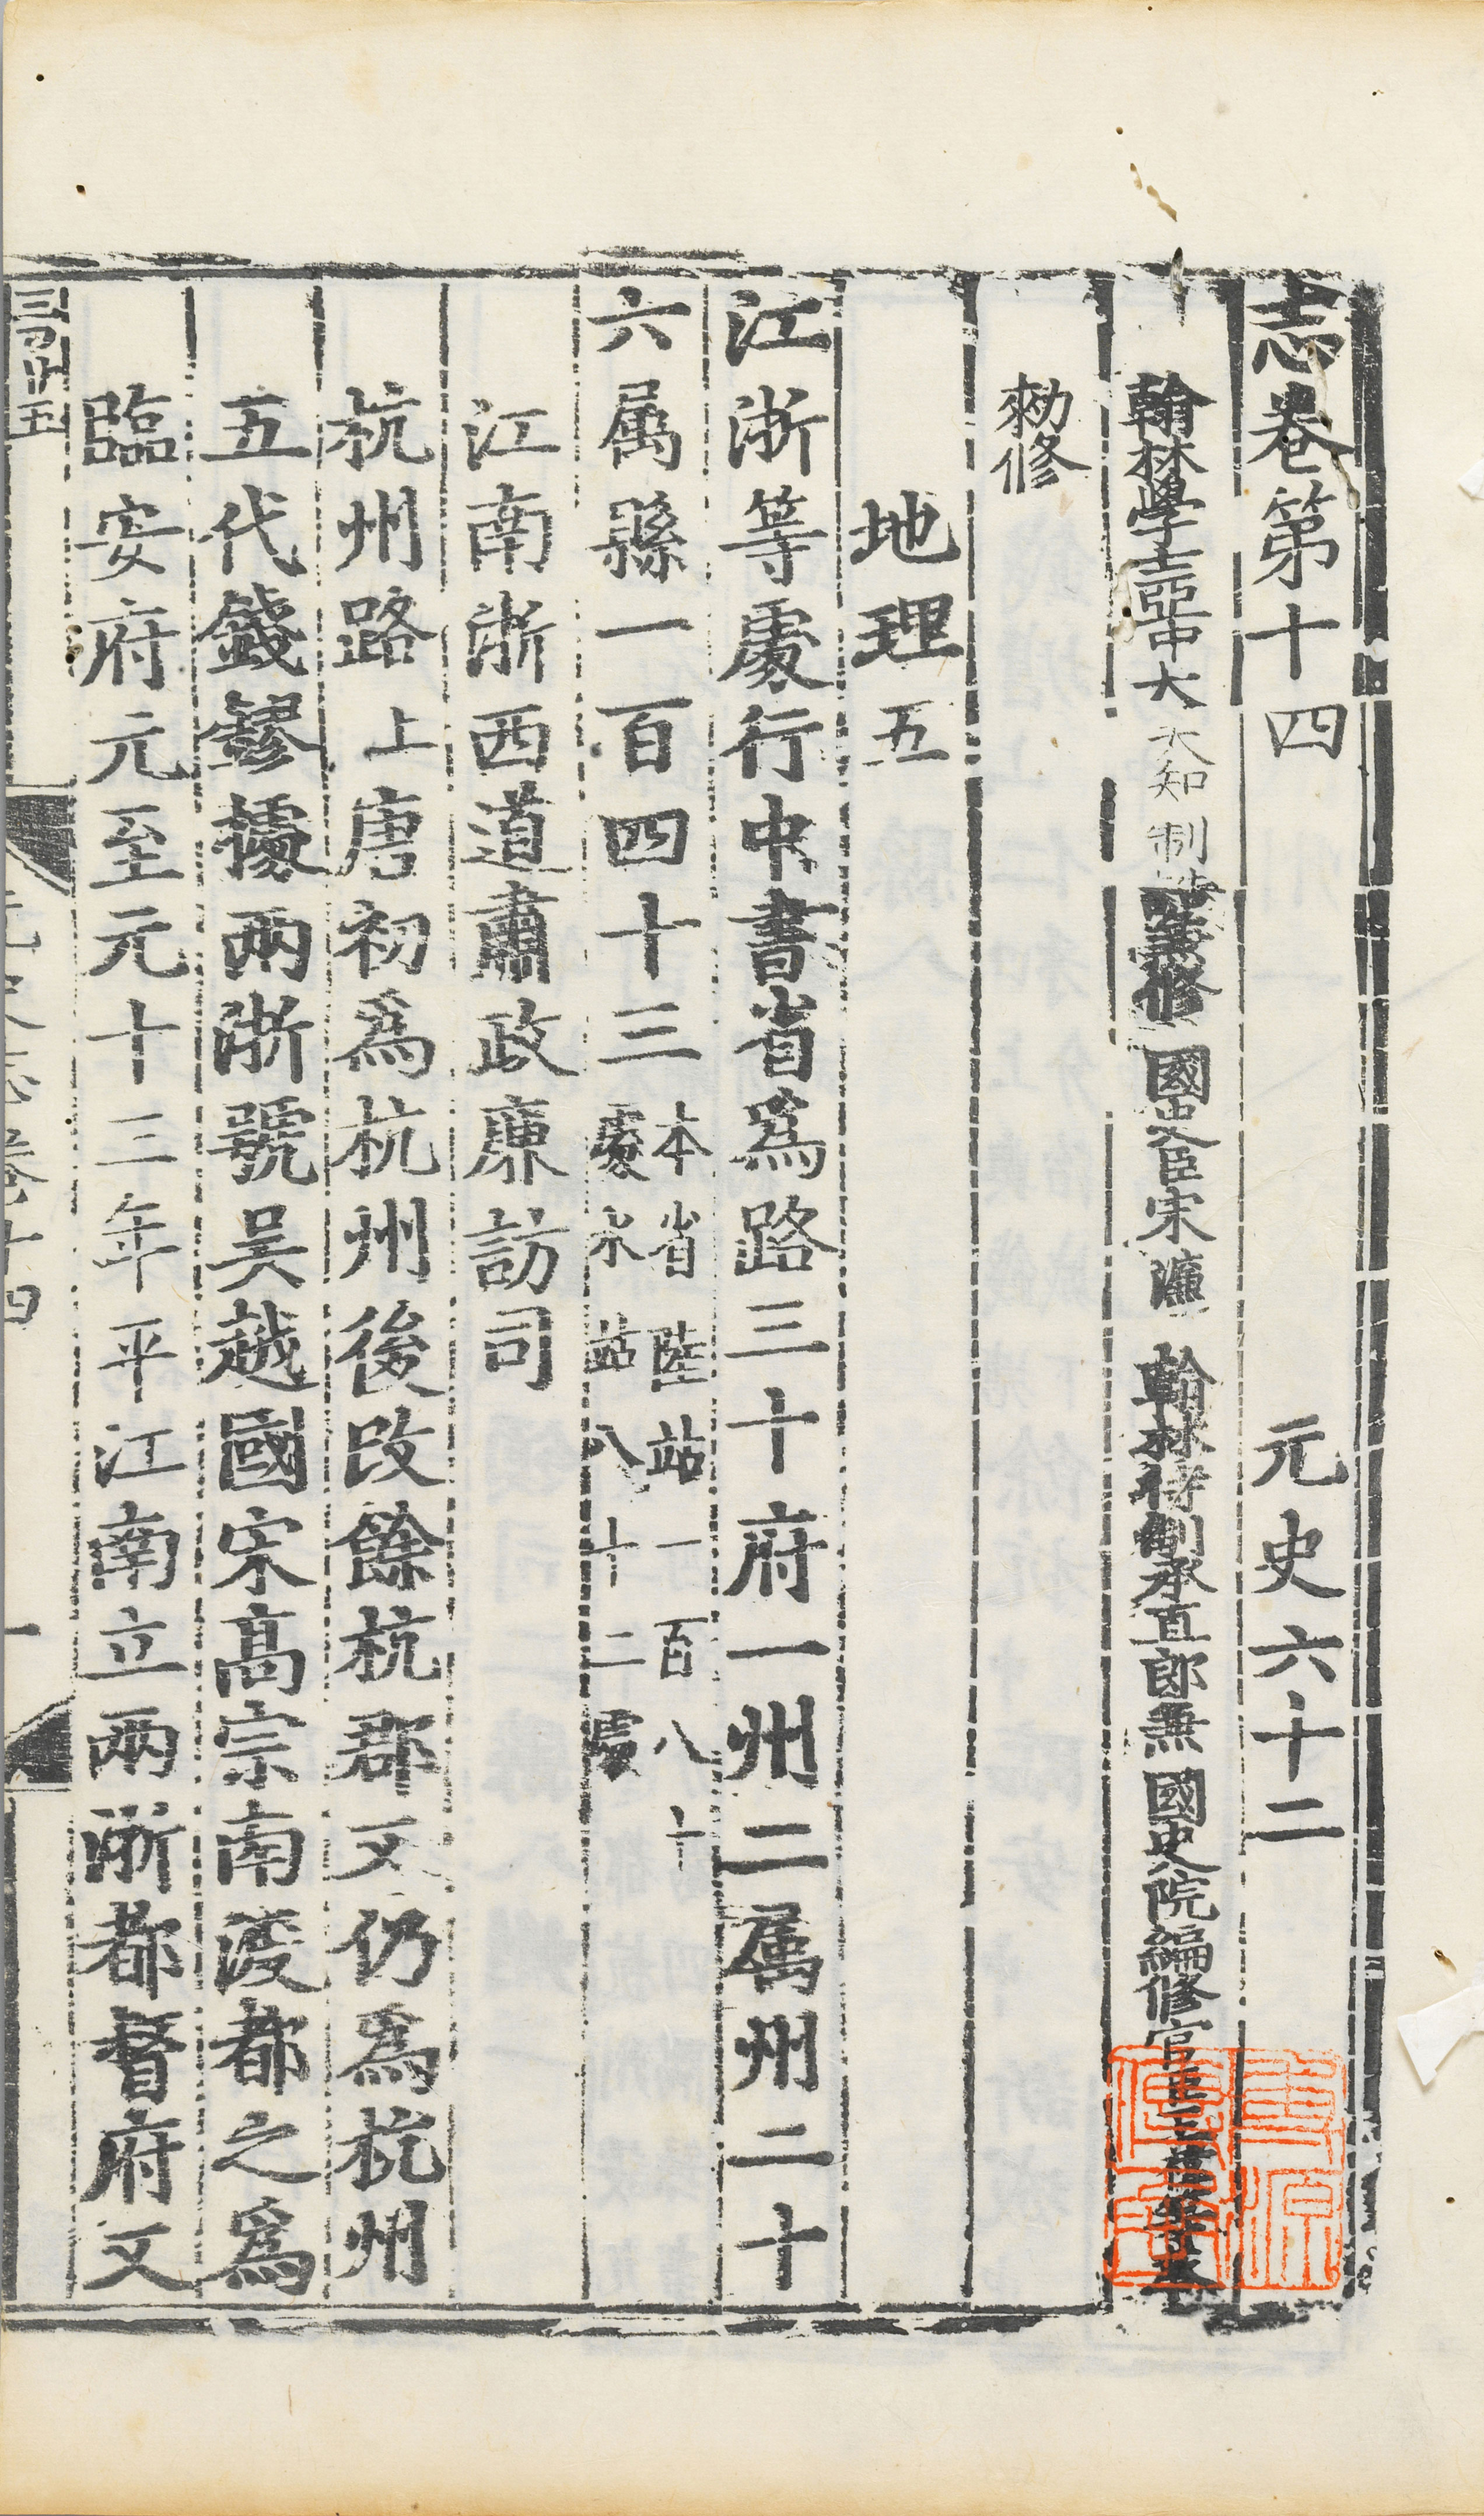 志卷第十四 元史六十二
翰林學士亞中大夫知制誥兼修國史臣宋濂 翰林待制承直郎兼國史院編修官臣王禕等奉
勑修
地理五
江浙等處行中書省爲路三十府一州二属州二十
六属縣一百四十三
本省陸站一百八十
處水站八十二處
江南浙西道肅政廉訪司
杭州路上唐初爲杭州後改餘杭郡又仍爲杭州
五代錢鏐據兩浙號吳越國宋高宗南渡都之爲
臨安府元至元十三年平江南立兩浙都督府又
元史志卷十四
一